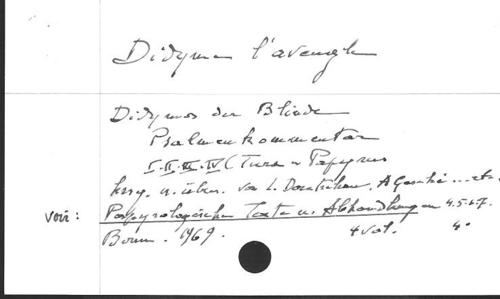 Didyme l'aveugle
Didymos der Blinde
Psalmenkommentar
I-II-III-IV (Tura-Papyrus
hrsg. u. übers. von L. Doutreleau, A Gesché ... etc.
voir: Papyrologische Texte u. Abhandlungen 4.5.6.7.
Bonn. 1969. 4 vol. 4°